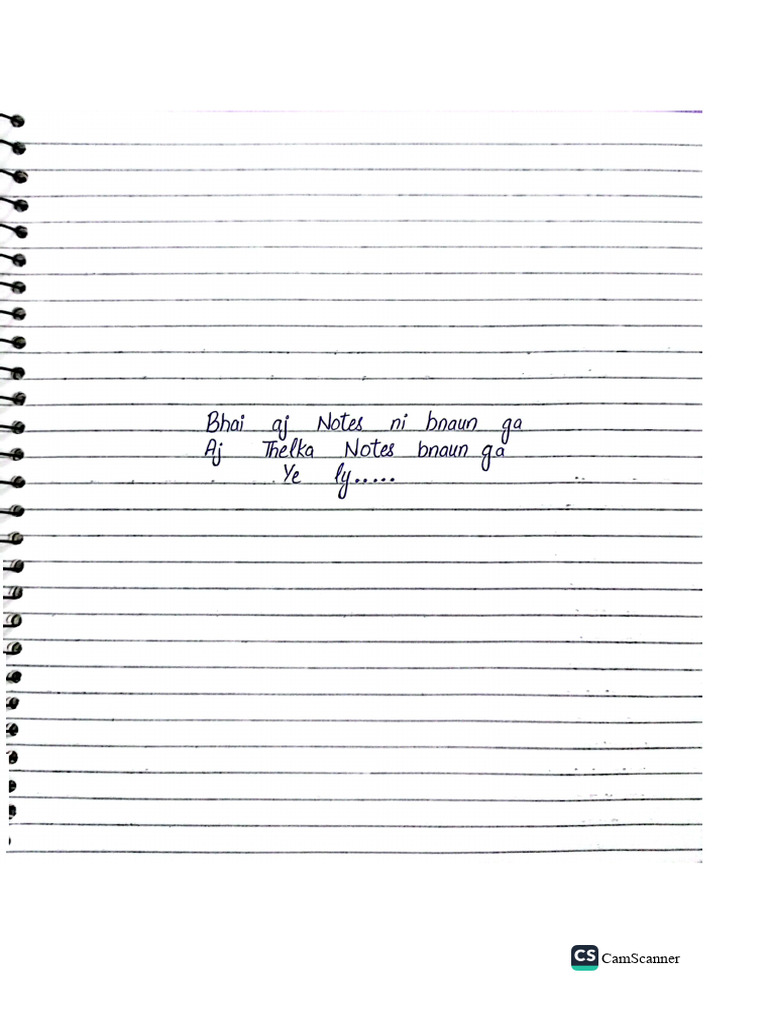 Bhai aj Notes ni bnaun ga
Aj Thelka Notes bnaun ga
Ye ly.....
CS CamScanner